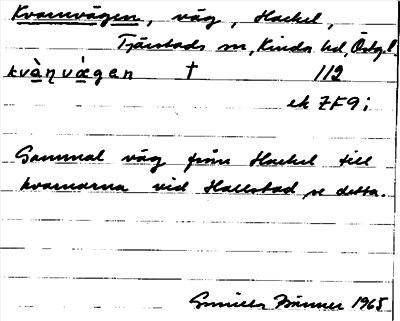 Kvarnvägen, väg, Hackel,
Tjärstads sn, Kinda hd, Östgl.
kvà̱ṇvæ̀gen † 112
ek 7F9i
Gammal väg från Hackel till
kvarnarna vid Hallstad, se detta.
Gunilla 1965